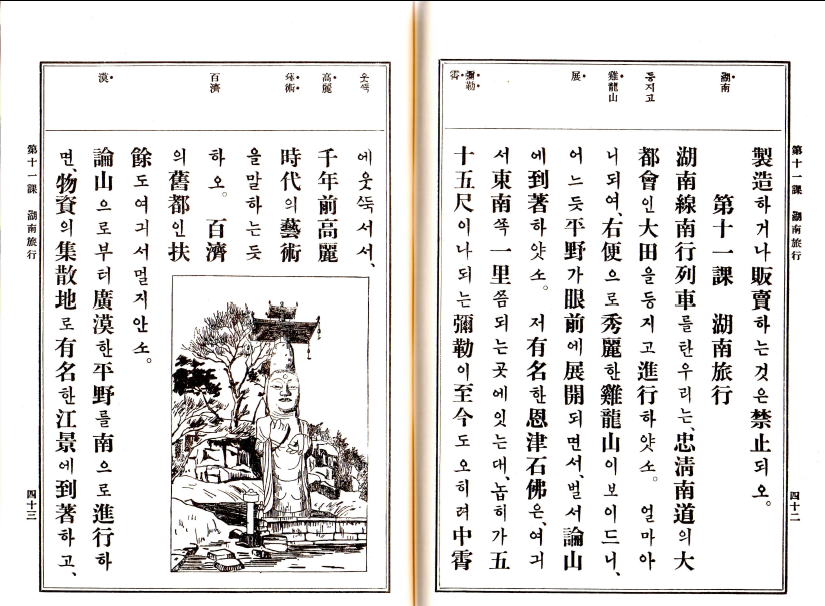 第十一課 湖南旅行
四十二
湖南
등지고
雞龍山
展
彌勒
霄
製造하거나販賣하는것은禁止되오。
第十一課 湖南旅行
湖南線南行列車를탄우리는、忠淸南道의大
都會인大田을등지고進行하얏소。얼마아
니되여、右便으로秀麗한雞龍山이보이드니、
어느듯平野가眼前에展開되면서、벌서論山
에到著하얏소。저有名한恩津石佛은、여긔
서東南ᄶᅩᆨ一里ᄶᅳᆷ되는곳에잇는대、놉히가五
十五尺이나되는彌勒이至今도오히려中霄
웃ᄯᅮᆨ
高麗
藝術
百濟
漠
에웃ᄯᅮᆨ서서、
千年前高麗
時代의藝術
을말하는듯
하오。百濟
의舊都인扶
餘도여긔서멀지안소。
論山으로부터廣漠한平野를南으로進行하
면、物資의集散地로有名한江景에到著하고、
第十一課 湖南旅行
四十三